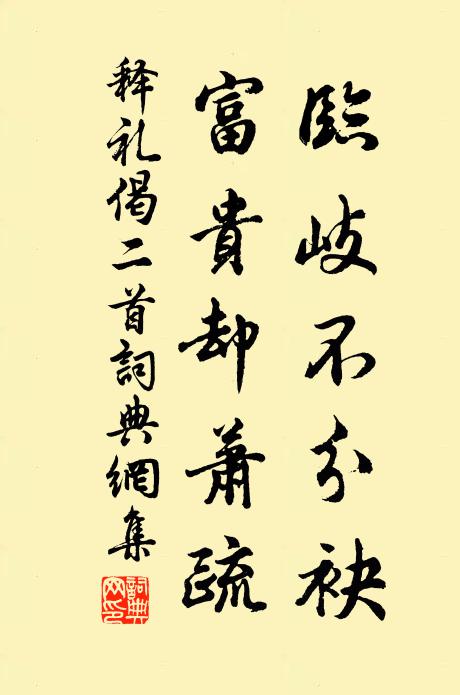 臨岐不分袂
富貴却蕭疏
释礼偈二首詞典網集
詞典
网印